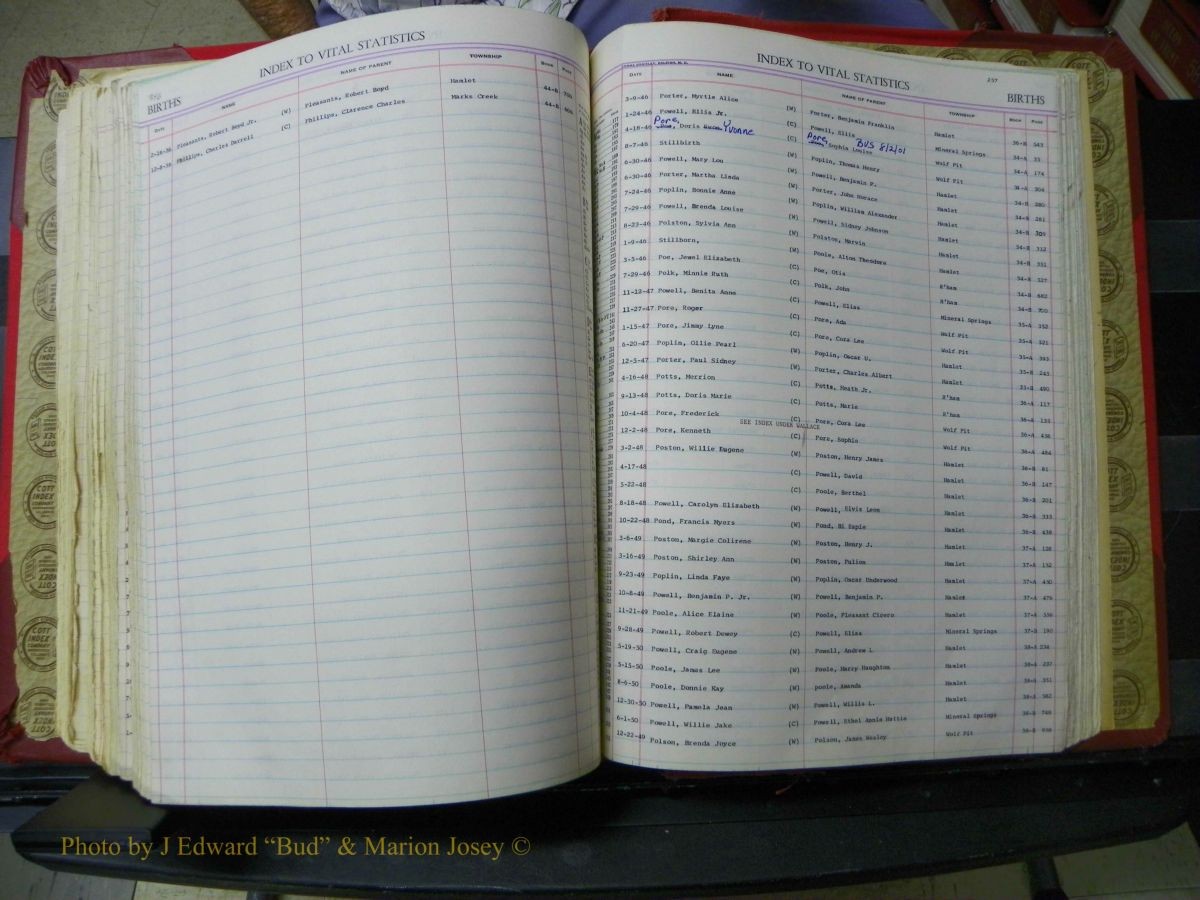 INDEX TO VITAL STATISTICS
BIRTHS
DATE NAME NAME OF PARENT TOWNSHIP BOOK PAGE
2-16-56 Pleasants, Robert Boyd Jr. (W) Pleasants, Robert Boyd Hamlet 44-B
12-8-56 Phillips, Charles Darrell (C) Phillips, Clarence Charles Marks Creek 44-B
INDEX TO VITAL STATISTICS 257
BIRTHS
DATE NAME NAME OF PARENT TOWNSHIP BOOK PAGE
3-9-46 Porter, Myrtle Alice (W) Porter, Benjamin Franklin Hamlet 36-B 543
1-24-46 Powell, Ellis Jr. (C) Powell, Ellis Mineral Springs 34-A 33
4-18-46 Pore, Doris Yvonne (C) Pore, Sophia Louise BVS 8/2/01 Wolf Pit 34-A 174
8-7-46 Stillbirth (W) Poplin, Thomas Henry Wolf Pit 34-A 204
6-30-46 Powell, Mary Lou (W) Powell, Benjamin P. Hamlet 34-B 280
6-30-46 Porter, Martha Linda (W) Porter, John Horace Hamlet 34-B 281
7-24-46 Poplin, Bonnie Anne (W) Poplin, William Alexander Hamlet 34-B 305
7-29-46 Powell, Brenda Louise (W) Powell, Sidney Johnson Hamlet 34-B 312
8-23-46 Polston, Sylvia Ann (W) Polston, Marvin Hamlet 34-B 351
1-9-46 Stillborn, (W) Poole, Alton Theodore Hamlet 34-B 527
3-5-46 Poe, Jewel Elizabeth (C) Poe, Otis R'ham 34-B 682
7-29-46 Polk, Minnie Ruth (C) Polk, John R'ham 34-B 700
11-12-47 Powell, Benita Anne (C) Powell, Elias Mineral Springs 35-A 352
11-27-47 Pore, Roger (C) Pore, Ada Wolf Pit 35-A 321
1-15-47 Pore, Jimmy Lyne (C) Pore, Cora Lee Wolf Pit 35-A 393
6-20-47 Poplin, Ollie Pearl (W) Poplin, Oscar U. Hamlet 35-B 243
12-5-47 Porter, Paul Sidney (W) Porter, Charles Albert Hamlet 35-B 490
4-16-48 Potts, Merrion (C) Potts, Heath Jr. R'ham 36-A 117
9-13-48 Potts, Doris Marie (C) Potts, Marie R'ham 36-A 133
10-4-48 Pore, Frederick (C) Pore, Cora Lee Wolf Pit 36-A 436
SEE INDEX UNDER WALLACE
12-2-48 Pore, Kenneth (C) Pore, Sophia Wolf Pit 36-A 484
3-2-48 Poston, Willie Eugene (W) Poston, Henry James Hamlet 36-B 81
4-17-48 (C) Powell, David Hamlet 36-B 147
5-22-48 (C) Poole, Berthel Hamlet 36-B 201
8-18-48 Powell, Carolyn Elizabeth (W) Powell, Elvis Leon Hamlet 36-B 333
10-22-48 Pond, Francis Myers (W) Pond, Hi Espie Hamlet 36-B 438
3-6-49 Poston, Margie Colirene (W) Poston, Henry J. Hamlet 37-A 128
3-16-49 Poston, Shirley Ann (W) Poston, Pulion Hamlet 37-A 152
9-23-49 Poplin, Linda Faye (W) Poplin, Oscar Underwood Hamlet 37-A 430
10-8-49 Powell, Benjamin P. Jr. (W) Powell, Benjamin P. Hamlet 37-A 479
11-21-49 Poole, Alice Elaine (W) Poole, Pleasant Cicero Hamlet 37-A 556
9-28-49 Powell, Robert Dewey (C) Powell, Elisa Mineral Springs 37-B 190
5-19-50 Powell, Craig Eugene (W) Powell, Andrew L Hamlet 38-A 234
5-15-50 Poole, James Lee (W) Poole, Harry Haughton Hamlet 38-A 237
8-6-50 Poole, Donnie Kay (W) poole, Amanda Hamlet 38-A 351
12-30-50 Powell, Pamela Jean (W) Powell, Willis L. Hamlet 38-A 582
6-1-50 Powell, Willie Jake (C) Powell, Ethel Annie Hattie Mineral Springs 38-B 748
12-22-49 Polson, Brenda Joyce (W) Polson, James Wesley Wolf Pit 38-B 936
Photo by J Edward “Bud” & Marion Josey ©